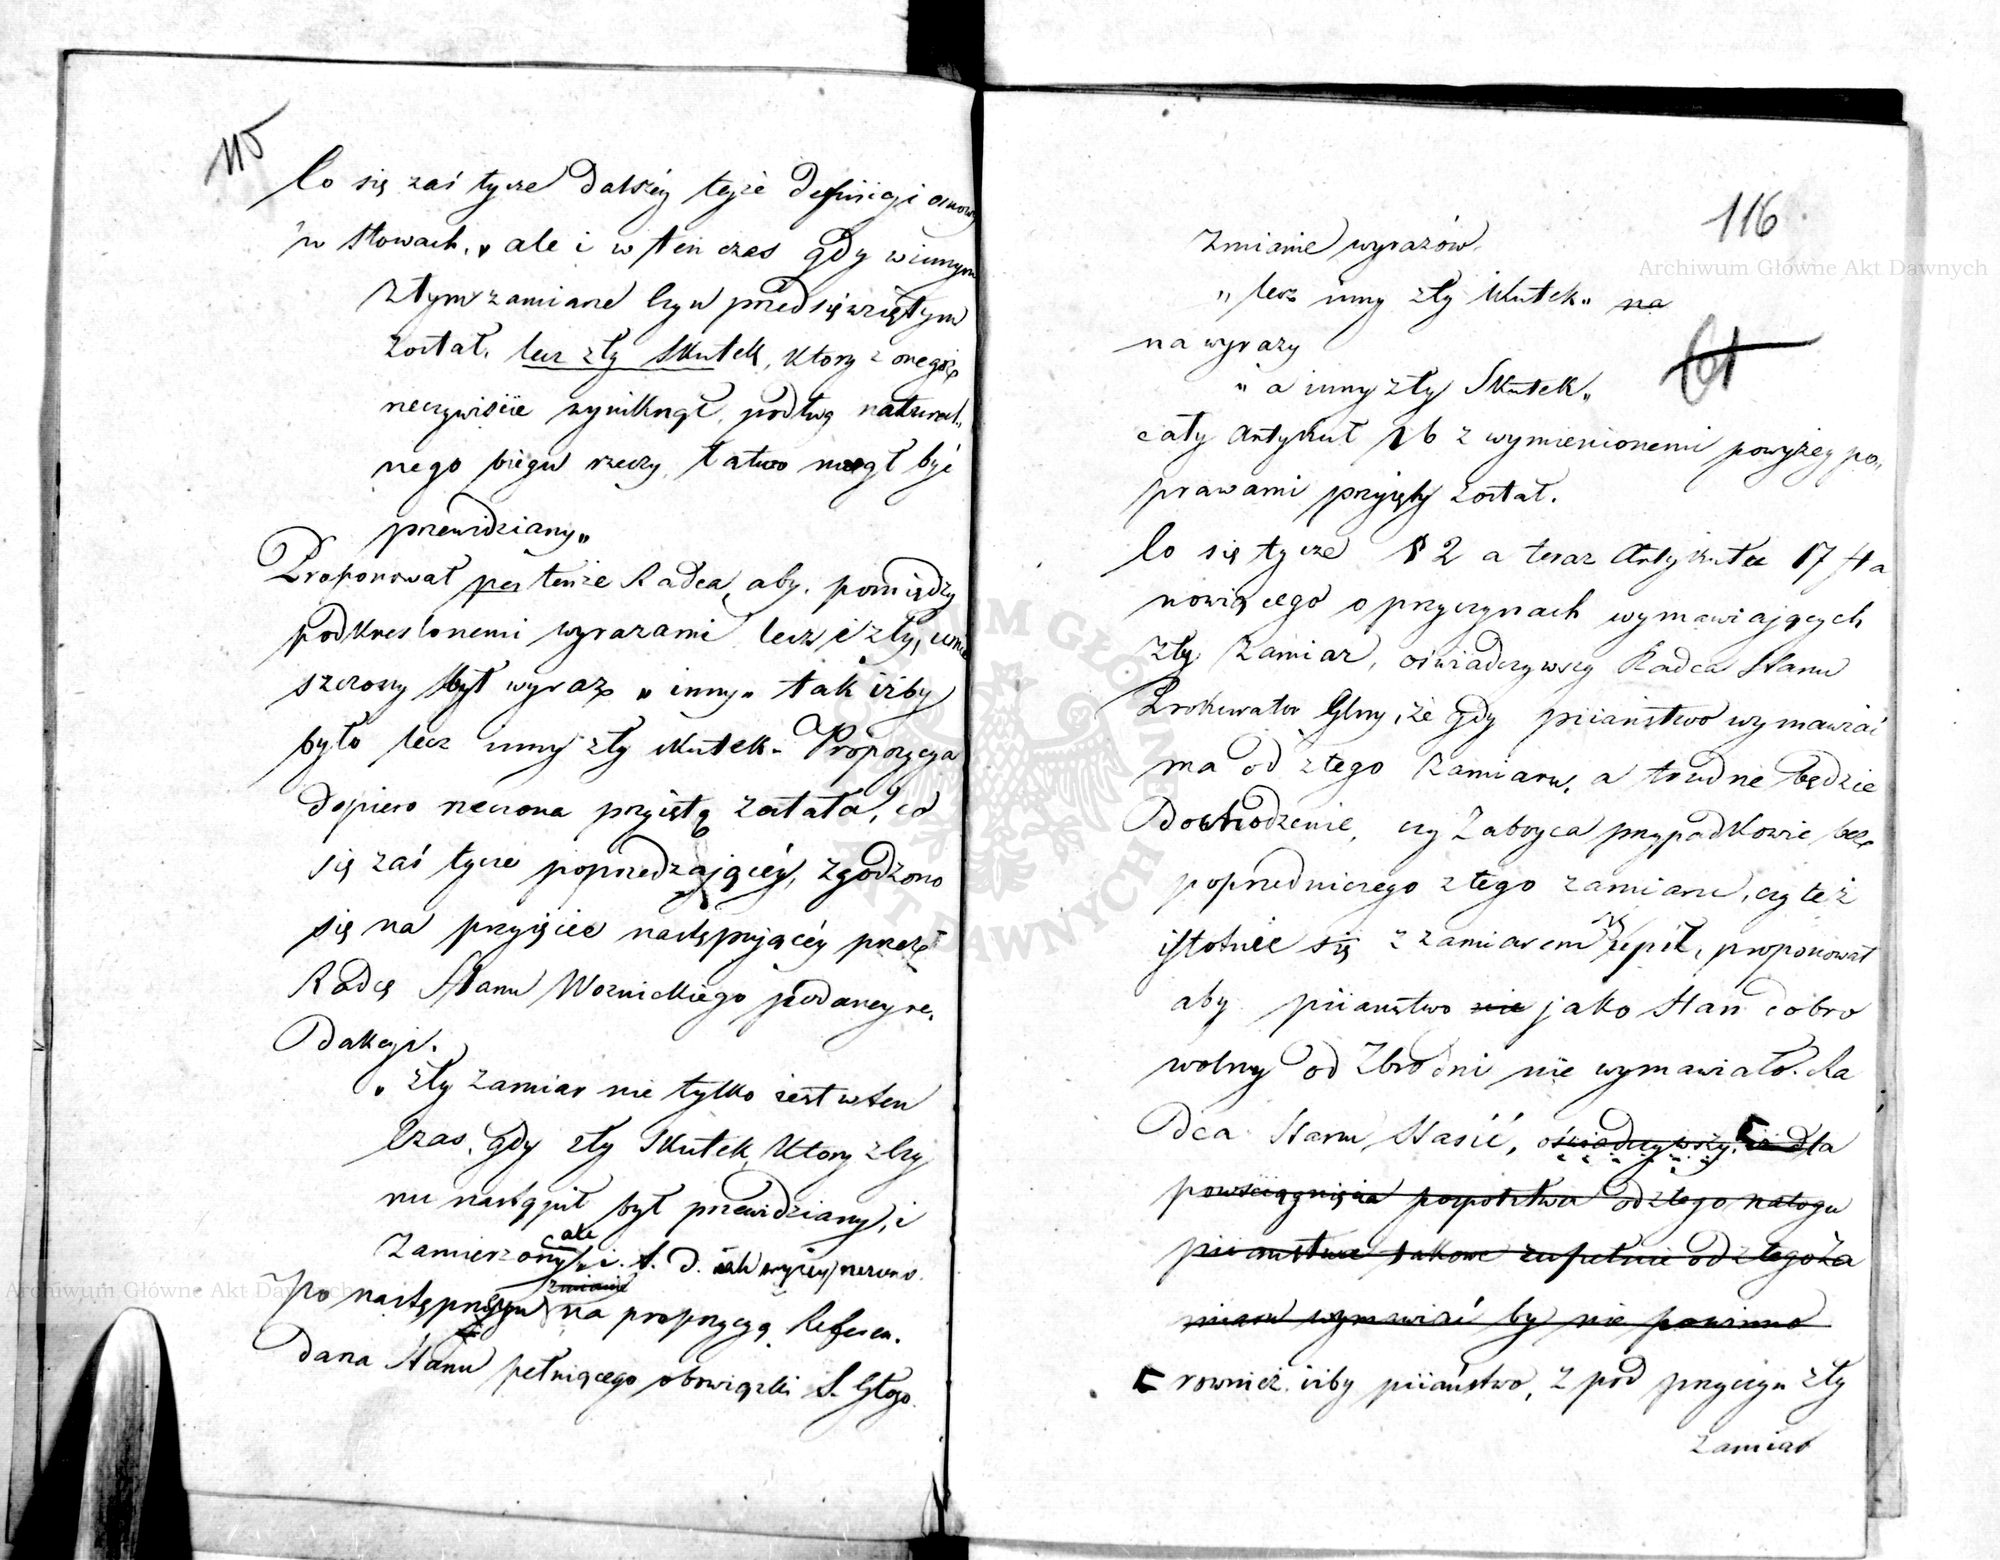 115
Co się zaś tycze dalszéy teyże definicyi osnowy
w słowach. „ ale i w ten czas gdy w innym
złym zamiarze czyn przedsięwziętym
został, lecz zły skutek, który z onegoż
rzeczywiście wyniknął, podług natural„
nego biegu rzeczy, łatwo mógł być
przewidziany„
Proponował tenże Radca, aby, pomiędzy
podkreslonemi wyrazami lecz i zły, umie
szczony był wyraz „ inny„ tak iżby
było lecz inny zły skutek. Propozycya
dopiero rzeczona przyiętą została, co
się zaś tycze poprzedzaiącéy, zgodzono
się na przyięcie następuiącéy przez
Radcę Stanu Woznickiego podaney re„
dakcyi.
„ Zły zamiar nie tylko iest w ten
czas, gdy zły skutek, który z czy
nu nastąpił był przewidziany, i
ale
zamierzony i. t. d. iak wyżey rzeczono.
zmianie
Po następney na propozycyą Referen.
darza Stanu pełniącego obowiązki S. Głgo.
116
zmianie wyrazów.
„ lecz inny zły skutek„ na
na wyrazy
61
„ a inny zły skutek„
cały Artykuł 16 z wymienionemi powyżey po„
prawami przyięty został.
Co się tycze § 2 a teraz Artykułu 17 sta
nowiącego o przyczynach wymawiaiących
zły zamiar, oświadczywszy Radca Stanu
Prokurator Glny, że gdy piiaństwo wymawiać
ma od złego zamiaru, a trudne będzie
dochodzenie, czy zaboyca przypadkowie bez
poprzedniczego złego zamiaru, czy też
istotnie się z zamiarem upił, proponował
aby piiaństwo nie jako stan dobro
wolny od zbrodni nie wymawiało. Ra
dca Stanu Stasić, oświadczywszy, iż dla
powściągnięcia pospolstwa od złego nałogu
piiaństwa takowe zupełnie od złego za
miaru wymawiać by nie powinno
rownież iżby piiaństwo, z pod przyczyn zły
zamiar